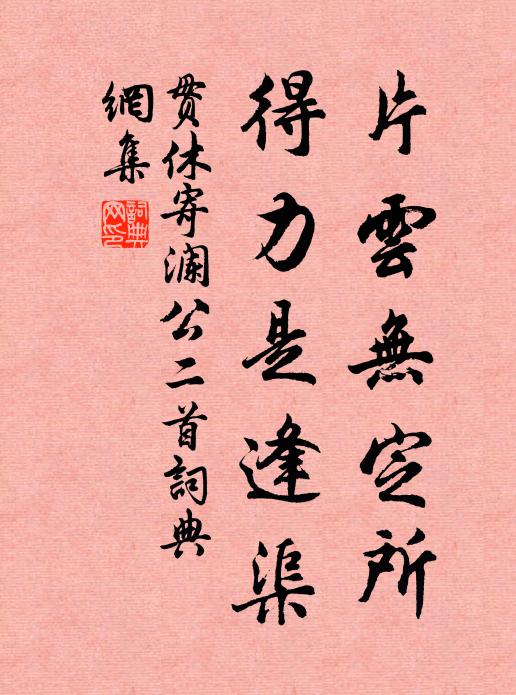 片雲無定所
得力是逢渠
貫休寄瀾公二首詞典
網集
詞典
网印